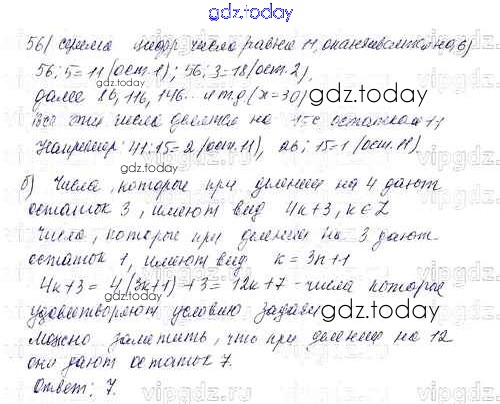 gdz.today
56 (сумма цифр числа равна 11, оканчивается на 6)
56:5=11 (ост.1); 56:3=18 (ост.2),
gdz.today
далее 86, 116, 146... и т.д. (x=30)
Все эти числа делятся на 15 с остатком 11
Например: 41:15=2 (ост.11), 26:15=1 (ост.11).
vipgdz.ru
б) Числа, которые при делении на 4 дают
остаток 3, имеют вид 4к+3, к∈Z
Числа, которые при делении на 3 дают
остаток 1, имеют вид к=3n+1
4к+3=4(3к+1)+3=12к+7 - числа которые
gdz.today
удовлетворяют условию задачи
Можно заметить, что при делении на 12
они дают остаток 7.
gdz.today
Ответ: 7.
vipgdz.ru